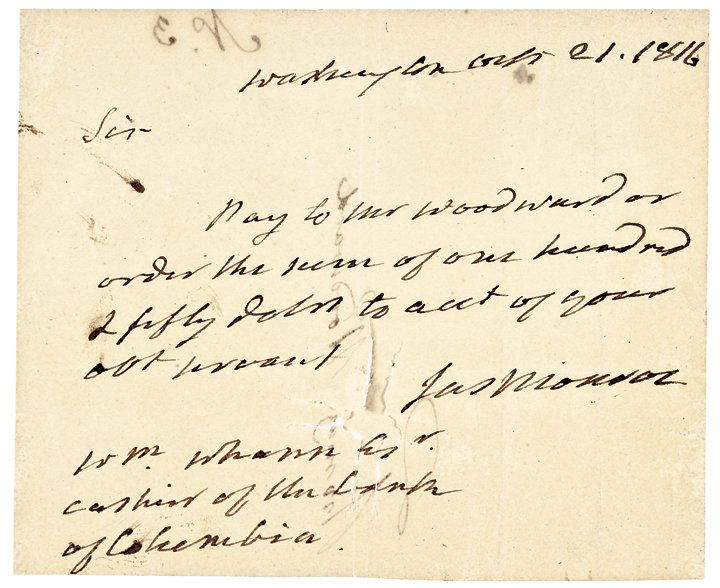 N. 3
Washington octr 21. 1816
Sir
Pay to Mr Woodward or
order the sum of one hundred
& fifty dolrs to acct of your
obt servant
Jas Monroe
Wm. Whann Esqr.
cashier of the
of Columbia.